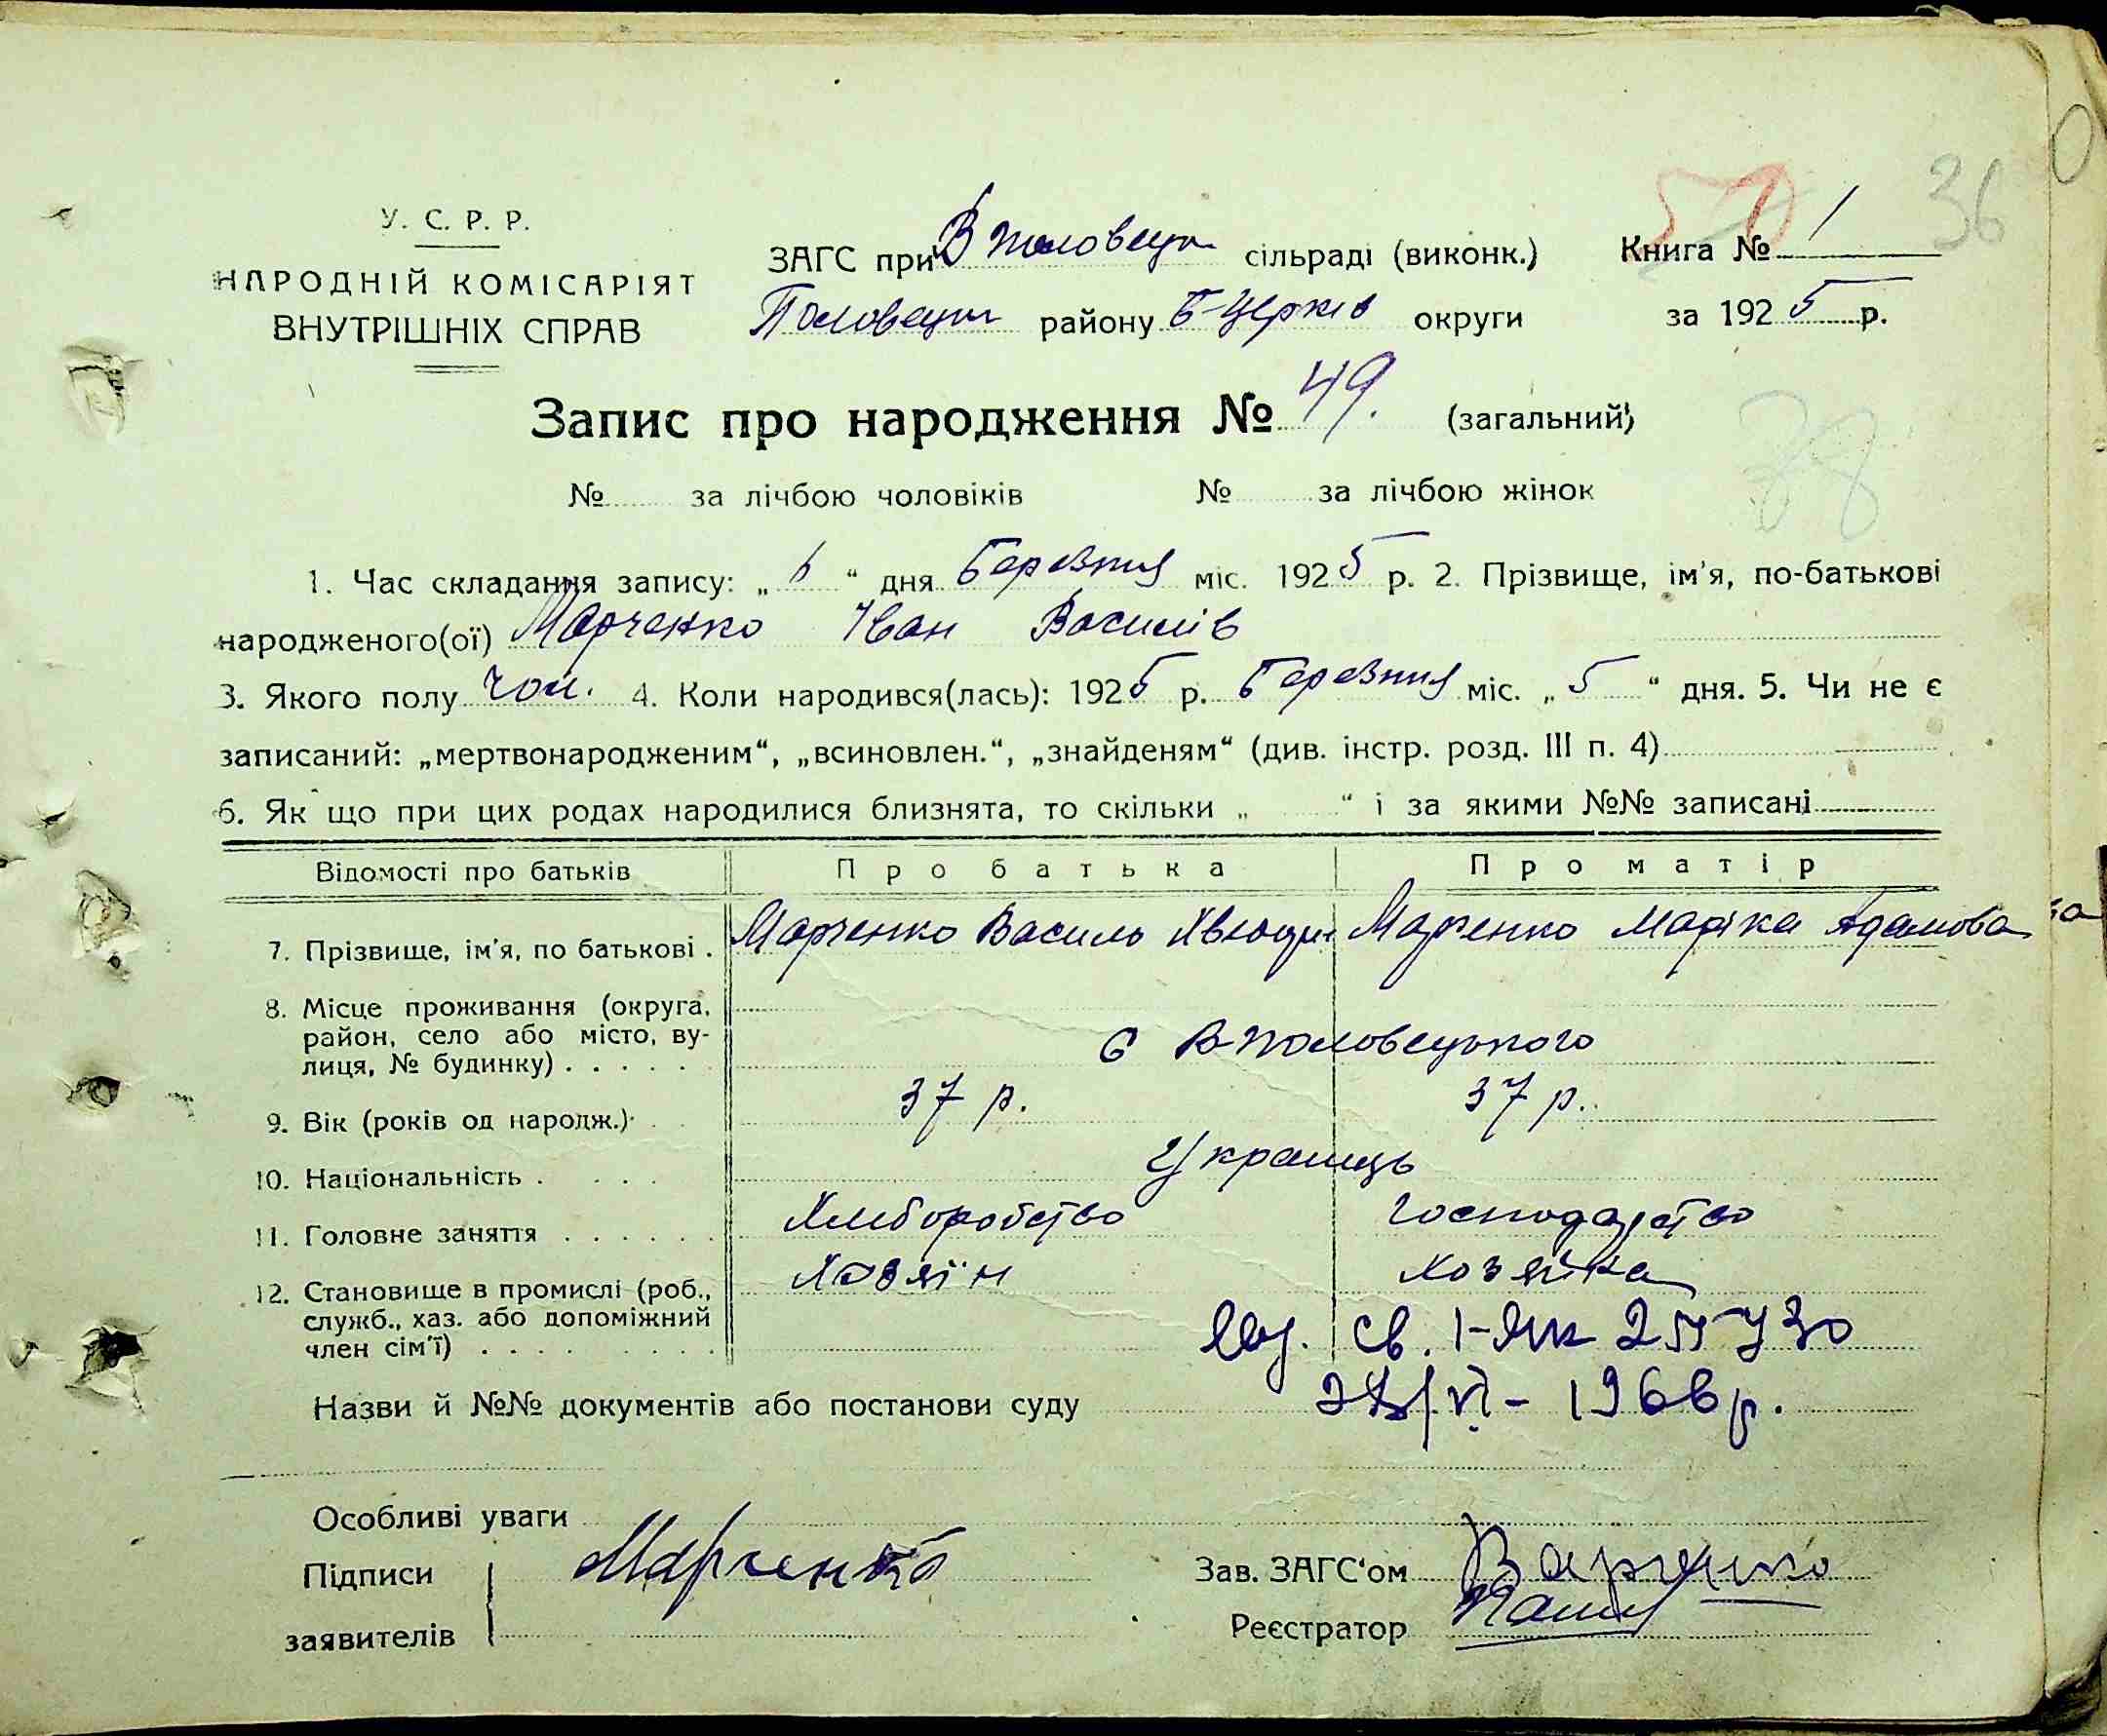 36
У. С. Р. Р.
НАРОДНІЙ КОМІСАРІЯТ
ВНУТРІШНІХ СПРАВ
ЗАГС при В Половецьк сільраді (виконк.) Книга № 1
Половецьк району Б-Церків округи за 1925 р.
Запис про народження № 49. (загальний)
38
№ за лічбою чоловіків № за лічбою жінок
1. Час складання запису: „6“ дня Березня міс. 1925 р. 2. Прізвище, ім'я, по-батькові
народженого(ої) Марченко Іван Василів
3. Якого полу чол. 4. Коли народився(лась): 1925 р. Березня міс. „5“ дня. 5. Чи не є
записаний: „мертвонародженим“, „всиновлен.“, „знайденям“ (див. інстр. розд. III п. 4)
6. Як що при цих родах народилися близнята, то скільки „ “ і за якими №№ записані
Відомості про батьків Про батька Про матір
7. Прізвище, ім'я, по батькові . Марченко Василь Марченко Маріка Адамова
8. Місце проживання (округа,
район, село або місто, ву-
лиця, № будинку) . . . . . С В-Половецького
9. Вік (років од народж.) 37 р. 37 р.
10. Національність . . . . Українць
11. Головне заняття . . . . . . Хліборобство Господарство
12. Становище в промислі (роб., Хозяїн Хозяйка
служб., хаз. або допоміжний
член сім'ї) . . . . . . . . св. І-
Назви й №№ документів або постанови суду VI - 1966 р.
Особливі уваги
Підписи Марченко Зав. ЗАГС'ом
заявителів Реєстратор